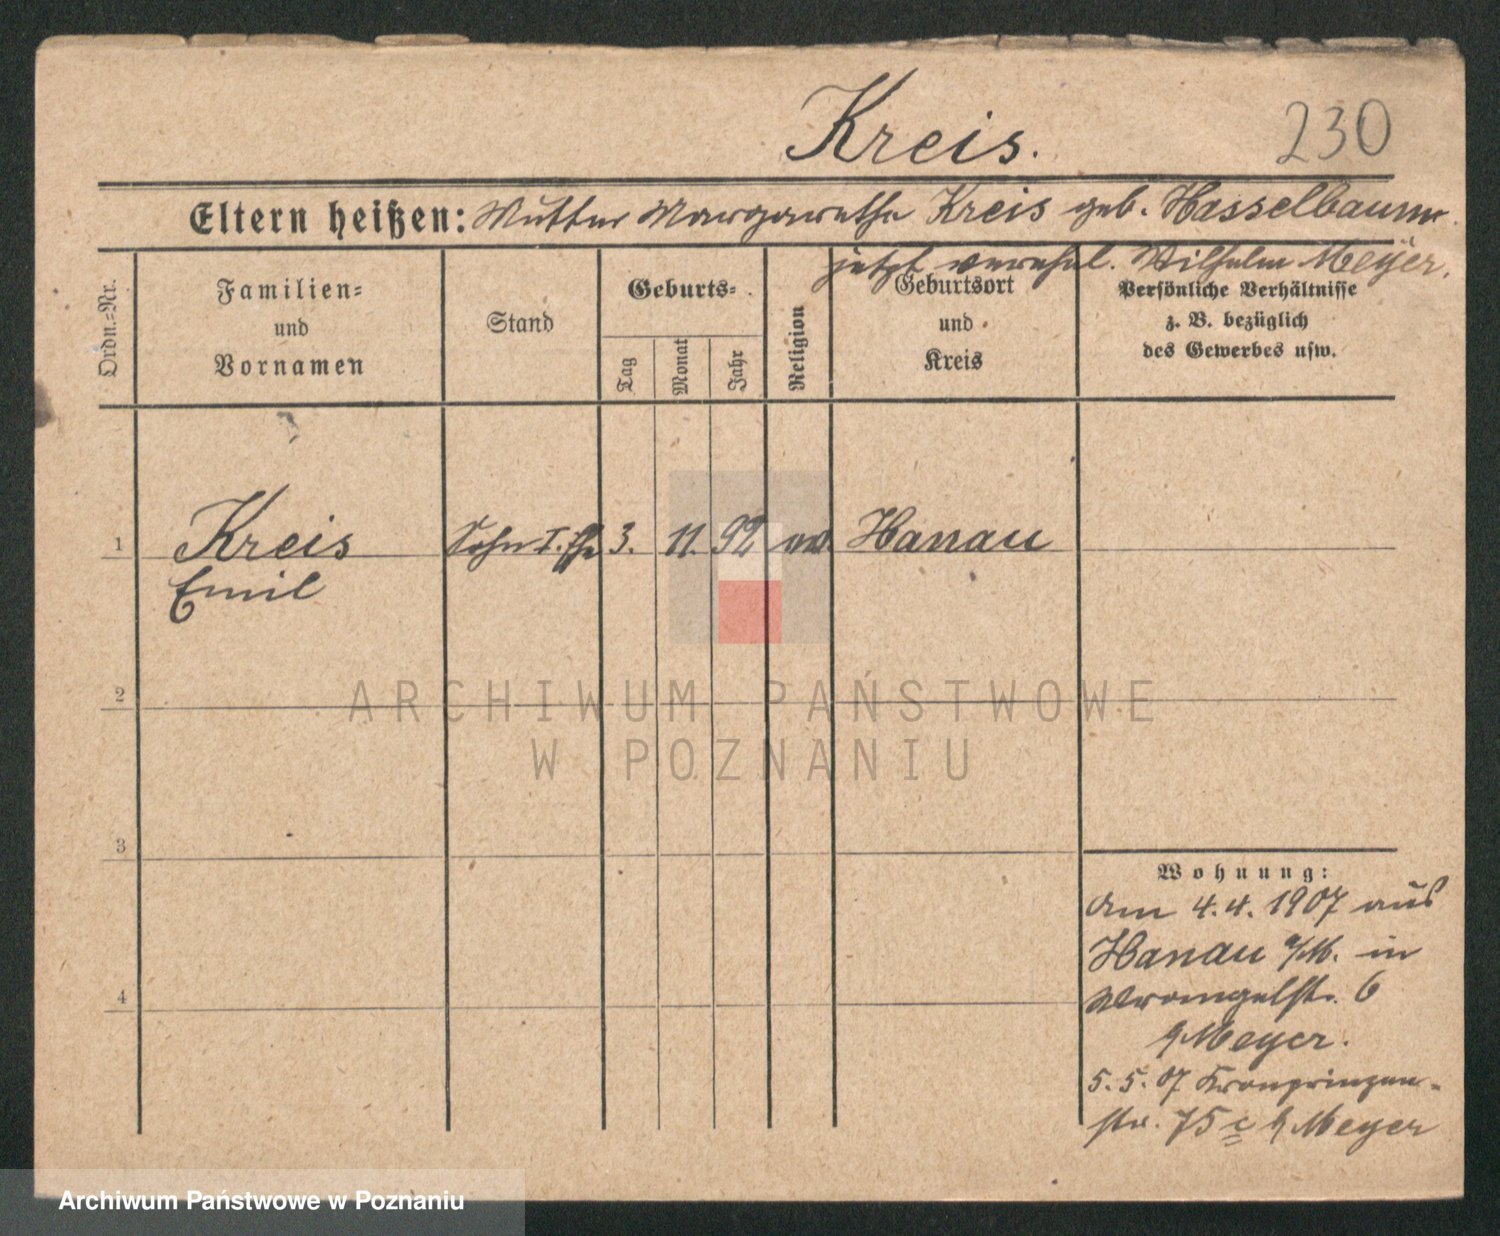 Kreis.
230
Eltern heißen: Mutter Margarethe Kreis geb. Hasselbaum
jetzt verehel. Wilhelm Meyer.
Ordn.-Nr.
Familien-
und
Vornamen
Stand
Geburts-
Tag
Monat
Jahr
Religion
Geburtsort
und
Kreis
Persönliche Verhältnisse
z. B. bezüglich
des Gewerbes usw.
1 Kreis Sohn I. Ehe 3. 11. 92 ev. Hanau
Emil
2
3
4
ARCHIWUM PAŃSTWOWE
W POZNANIU
Wohnung:
Am 4.4.1907 aus
Hanau a/M. in
Wrangelstr. 6
Meyer.
5. 5. 07 Kronprinzen-
str. 75 c Meyer
Archiwum Państwowe w Poznaniu